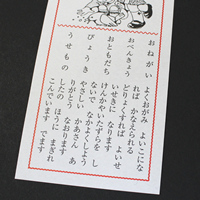 おねがい　よくおがみ　よいこにな
れば　かなえられる
おべんきょう　どりょくすれば　よいせ
いせきに　なります
おともだち　けんかや　いたずらを　し
ないで　なかよくしよう
びょうき　やさしい　かあさん　あ
りがとう　なおります
うせもの　したの　ほうに　まぎれ
こんでいます　でます